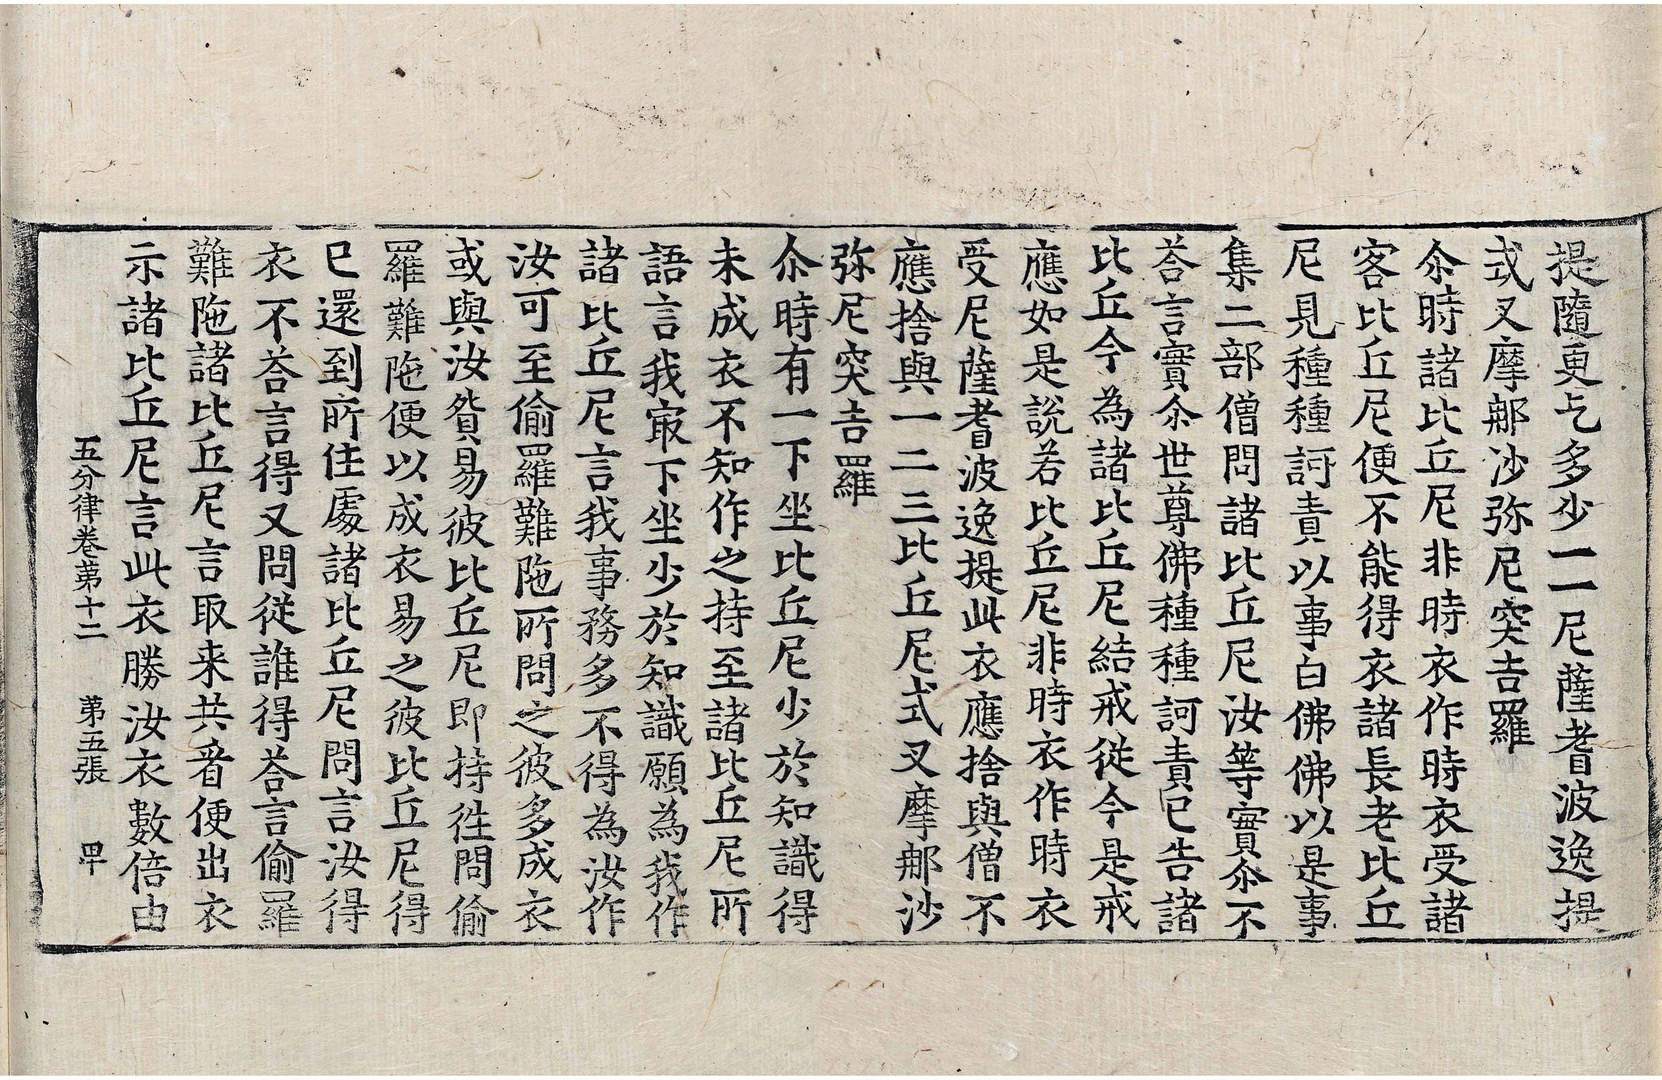 提隨更乞多少一一尼薩耆波逸提
式叉摩那沙弥尼突吉羅
尒時諸比丘尼非時衣作時衣受諸
客比丘尼便不能得衣諸長老比丘
尼見種種訶責以事白佛佛以是事
集二部僧問諸比丘尼汝等實尒不
荅言實尒世尊佛種種訶責已告諸
比丘今為諸比丘尼結戒從今是戒
應如是說若比丘尼非時衣作時衣
受尼薩耆波逸提此衣應捨與僧不
應捨與一二三比丘尼式叉摩那沙
弥尼突吉羅
尒時有一下坐比丘尼少於知識得
未成衣不知作之持至諸比丘尼所
語言我㝡下坐少於知識願為我作
諸比丘尼言我事務多不得為汝作
汝可至偷羅難陁所問之彼多成衣
或與汝貿易彼比丘尼即持徃問偷
羅難陁便以成衣易之彼比丘尼得
已還到所住處諸比丘尼問言汝得
衣不荅言得又問從誰得荅言偷羅
難陁諸比丘尼言取来共看便出衣
示諸比丘尼言此衣勝汝衣數倍由
五分律卷苐十二 苐五張 㽞